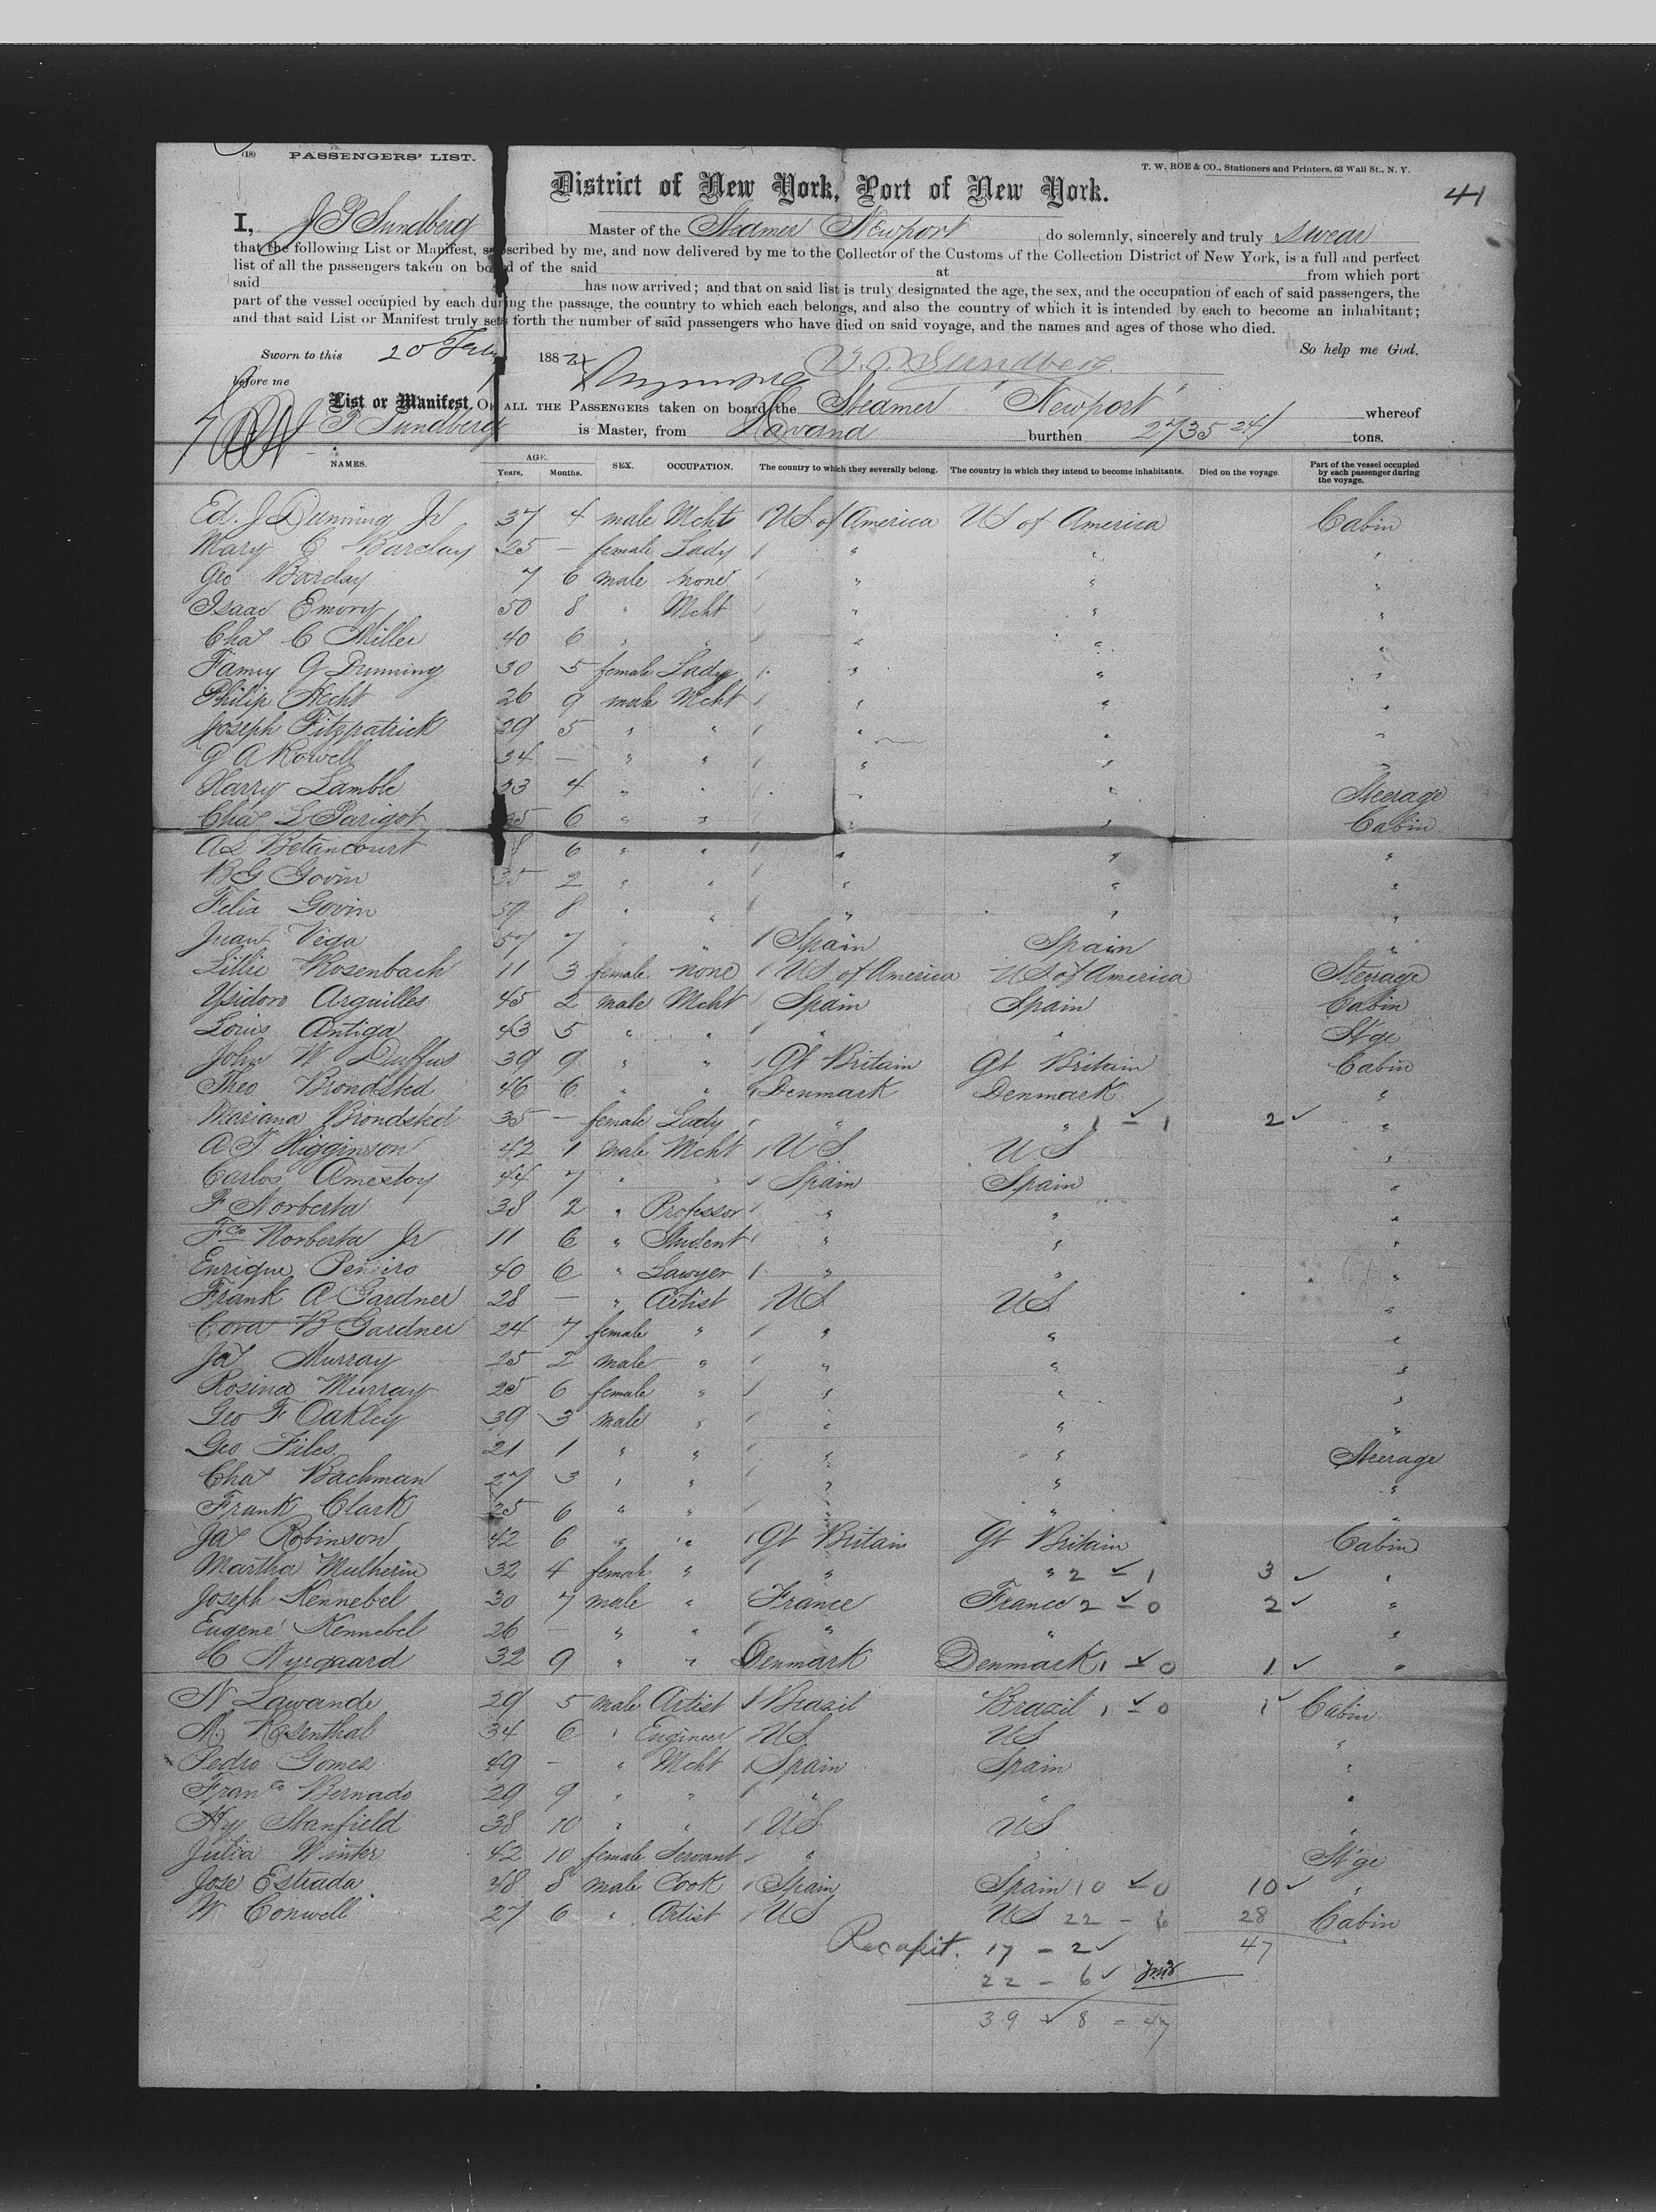 (18) PASSENGERS' LIST.
T. W. ROE & CO., Stationers and Printers, 63 Wall St., N. Y.
41
District of New York, Port of New York.
I, J P Sundberg Master of the Steamer Newport do solemnly, sincerely and truly swear
that the following List or Manifest, subscribed by me, and now delivered by me to the Collector of the Customs of the Collection District of New York, is a full and perfect
list of all the passengers taken on board of the said at from which port
said has now arrived; and that on said list is truly designated the age, the sex, and the occupation of each of said passengers, the
part of the vessel occupied by each during the passage, the country to which each belongs, and also the country of which it is intended by each to become an inhabitant;
and that said List or Manifest truly sets forth the number of said passengers who have died on said voyage, and the names and ages of those who died.
Sworn to this 20 Feby 188 So help me God.
before me J. P. Sundberg.
List or Manifest, OF ALL THE PASSENGERS taken on board the Steamer "Newport" whereof
J P Sundberg is Master, from Havana burthen 2735 24/ tons.
NAMES. AGE. Years. Months. SEX. OCCUPATION. The country to which they severally belong. The country in which they intend to become inhabitants. Died on the voyage. Part of the vessel occupied by each passenger during the voyage.
Ed. J Dunning Jr 37 4 male Mcht 1 US of America US of America Cabin
Mary C Barclay 25 — female Lady 1 " " "
Geo Barclay 7 6 male none 1 " " "
Isaac Emory 50 8 " Mcht 1 " " "
Chas C Miller 40 6 " " 1 " " "
Fanny G Dunning 30 5 female Lady 1 " " "
Philip Hecht 26 9 male Mcht 1 " " "
Joseph Fitzpatrick 39 5 " " 1 " " "
G A Rowell 34 — " " 1 " " "
Harry Lamble 33 4 " " 1 " " Steerage
Chas L Parigot 6 " " 1 " " Cabin
A L Betancourt 6 " " 1 " " "
B G Govin 35 2 " " 1 " " "
Felix Govin 59 8 " " 1 " " "
Juan Vega 57 7 " " 1 Spain Spain "
Lillie Rosenbach 11 3 female none 1 US of America US of America Steerage
Ysidoro Arguilles 45 2 male Mcht 1 Spain Spain Cabin
Louis Antiga 43 5 " " 1 " " St'ge
John W Duffus 39 9 " " 1 Gt Britain Gt Britain Cabin
Theo Brondsted 46 6 " " 1 Denmark Denmark "
Mariana Brondsted 35 — female Lady 1 " " 1 – 1 2 ✓ "
A T Higginson 42 1 male Mcht 1 US US "
Carlos Amestoy 44 7 " " 1 Spain Spain "
F Norberta 38 2 " Professor 1 " " "
Fco Norberta Jr 11 6 " Student 1 " " "
Enrique 40 6 " Lawyer 1 " " "
Frank A Gardner 28 — " Artist 1 US US "
Cora B Gardner 24 7 female " 1 " " "
Jas Murray 25 2 male " 1 " " "
Rosina Murray 25 6 female " 1 " " "
Geo F Oakley 39 3 male " 1 " " "
Geo Files 21 1 " " 1 " " Steerage
Chas Bachman 27 3 " " 1 " " "
Frank Clark 25 6 " " 1 " " "
Jas Robinson 42 6 " " 1 Gt Britain Gt Britain Cabin
Martha Mulherin 32 4 female " 1 " " 2 – 1 3 ✓ "
Joseph Kennebel 30 7 male " 1 France France 2 – 0 2 ✓ "
Eugene Kennebel 26 — " " 1 " " "
C Nyegaard 32 9 " " Denmark Denmark 1 – 0 1 ✓ "
N Lawande 29 5 male Artist 1 Brazil Brazil 1 – 0 1 ✓ Cabin
M Rosenthal 34 6 " Engineer 1 US US "
Pedro Gomez 49 — " Mcht 1 Spain Spain "
Franco Bernado 29 9 " " 1 " " "
Hy Stanfield 38 10 " " 1 US US "
Julia Winter 42 10 female Servant 1 " " St'ge
Jose Estrada 48 8 male Cook 1 Spain Spain 10 – 0 10 ✓ "
W Conwell 27 6 " Artist 1 US US 22 – 6 28 Cabin
Recapit. 17 – 2 ✓ 47
22 – 6 ✓
39 8 = 47